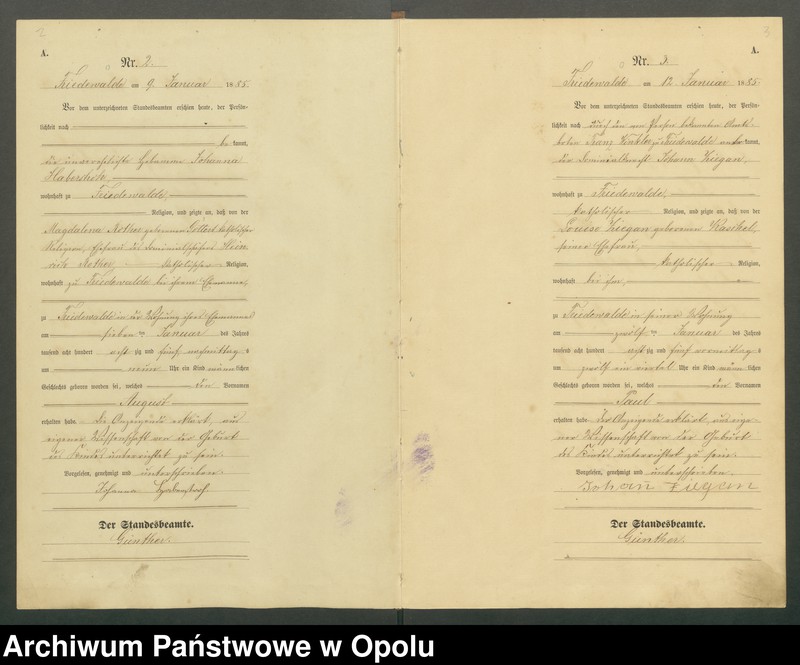 2
A.
Nr. 2.
Friedewalde am 9. Januar 1885
Vor dem unterzeichneten Standesbeamten erschien heute, der Persön-
lichkeit nach
be kannt,
die unverehelichte Hebamme Johanna
Haberstroh,
wohnhaft zu Friedewalde,
Religion, und zeigte an, daß von der
Magdalena Rother geborenen katholischer
Religion, Ehefrau des Dominialschäfers Hein-
rich Rother, katholischer Religion,
wohnhaft zu Friedewalde bei ihrem Ehemanne,
zu Friedewalde in der Wohnung ihres Ehemannes
am sieben ten Januar des Jahres
tausend acht hundert acht zig und fünf nachmittag s
um neun Uhr ein Kind männ lichen
Geschlechts geboren worden sei, welches den Vornamen
August
erhalten habe. Die Anzeigende erklärt, aus
eigener Wissenschaft von der Geburt
des Kindes unterrichtet zu sein.
Vorgelesen, genehmigt und unterschrieben.
Johanna Haberstroh
Der Standesbeamte.
Günther.
3
A.
Nr. 3.
Friedewalde am 12. Januar 1885.
Vor dem unterzeichneten Standesbeamten erschien heute, der Persön-
lichkeit nach durch den von Person bekannten Amts-
boten Franz Winkler zu Friedewalde kannt,
der Dominialknecht Johann Ziegan,
wohnhaft zu Friedewalde,
katholischer Religion, und zeigte an, daß von der
Louise Ziegan geborenen Raschel,
seiner Ehefrau,
katholischer Religion,
wohnhaft bei ihm,
zu Friedewalde in seiner Wohnung
am zwölf ten Januar des Jahres
tausend acht hundert acht zig und fünf vormittag s
um zwölf ein viertel Uhr ein Kind männ lichen
Geschlechts geboren worden sei, welches den Vornamen
Paul
erhalten habe. Der Anzeigende erklärt, aus eige-
ner Wissenschaft von der Geburt
des Kindes unterrichtet zu sein.
Vorgelesen, genehmigt und unterschrieben.
Johan Ziegan
Der Standesbeamte.
Günther.
Archiwum Państwowe w Opolu